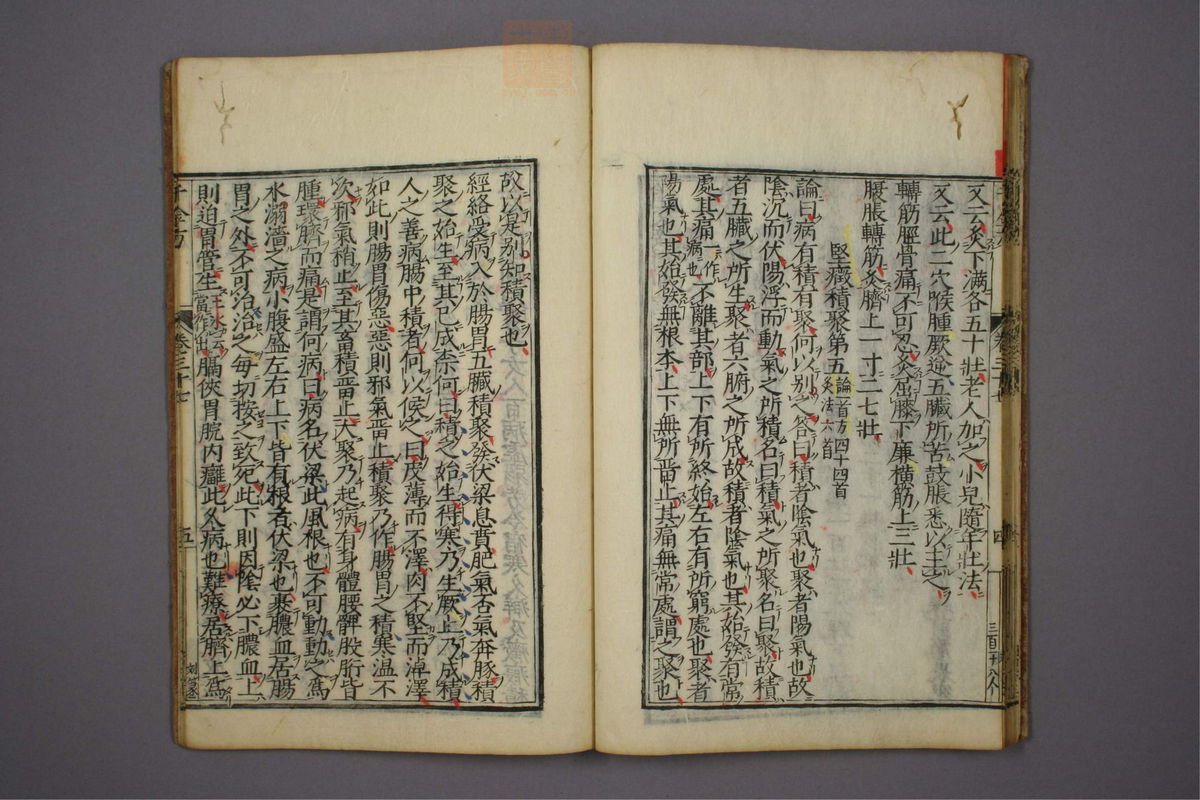 又云灸下滿各五十壯老人加之小兒隨年壯法
又云此二穴喉腫厥逆五臟所苦鼓脹悉以主之
轉筋脛骨痛不可忍灸屈膝下廉橫筋上三壯
腹脹轉筋灸臍上一寸二七壯
堅癥積聚第五論一首方四十四首灸法六首
論曰病有積有聚何以別之答曰積者陰氣也聚者陽氣也故
陰沉而伏陽浮而動氣之所積名曰積氣之所聚名曰聚故積
者五臟之所生聚者六腑之所成故積者陰氣也其始發有常
處其痛一作病也不離其部上下有所終始左右有所窮處也聚者
陽氣也其始發無根本上下無所畱止其痛無常處謂之聚也
故以是別知積聚也
經絡受病入於腸胃五臟積聚發伏梁息賁肥氣否氣奔豚積
聚之始生至其已成柰何曰積之始生得寒乃生厥上乃成積
人之善病腸中積者何以候之曰皮薄而不澤肉不堅而淖澤
如此則腸胃傷惡惡則邪氣畱止積聚乃作腸胃之積寒溫不
次邪氣稍止至其畜積畱止大聚乃起病有身體腰髀股胻皆
腫環臍而痛是謂何病曰病名伏梁此風根也不可動動之爲
水溺濇之病小腹盛左右上下皆有根者伏梁也裹膿血居腸
胃之外不可治治之每切按之致死此下則因陰必下膿血上
則迫胃管生王冰云當作出膈俠胃脘內癰此久病也難療居臍上爲
千金方
卷三十七
五
卷三十七
四